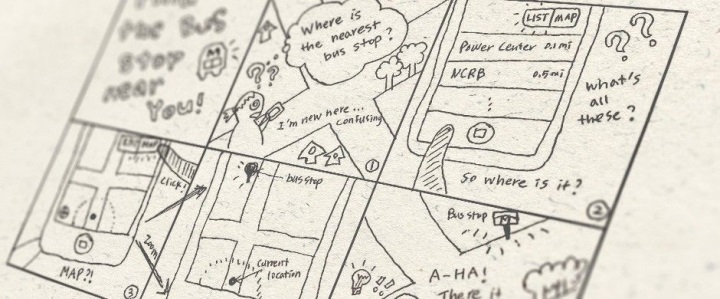 the Bus
Stop
near
You!
Where is
the nearest
bus stop?
I'm new here...
confusing
1
LIST MAP
Power Center 0.1mi
NCRB 0.5mi
what's
all
these?
So where is it?
2
Click!
Zoom
MAP?!
3
bus stop
current
location
Bus stop
A-HA!
There it